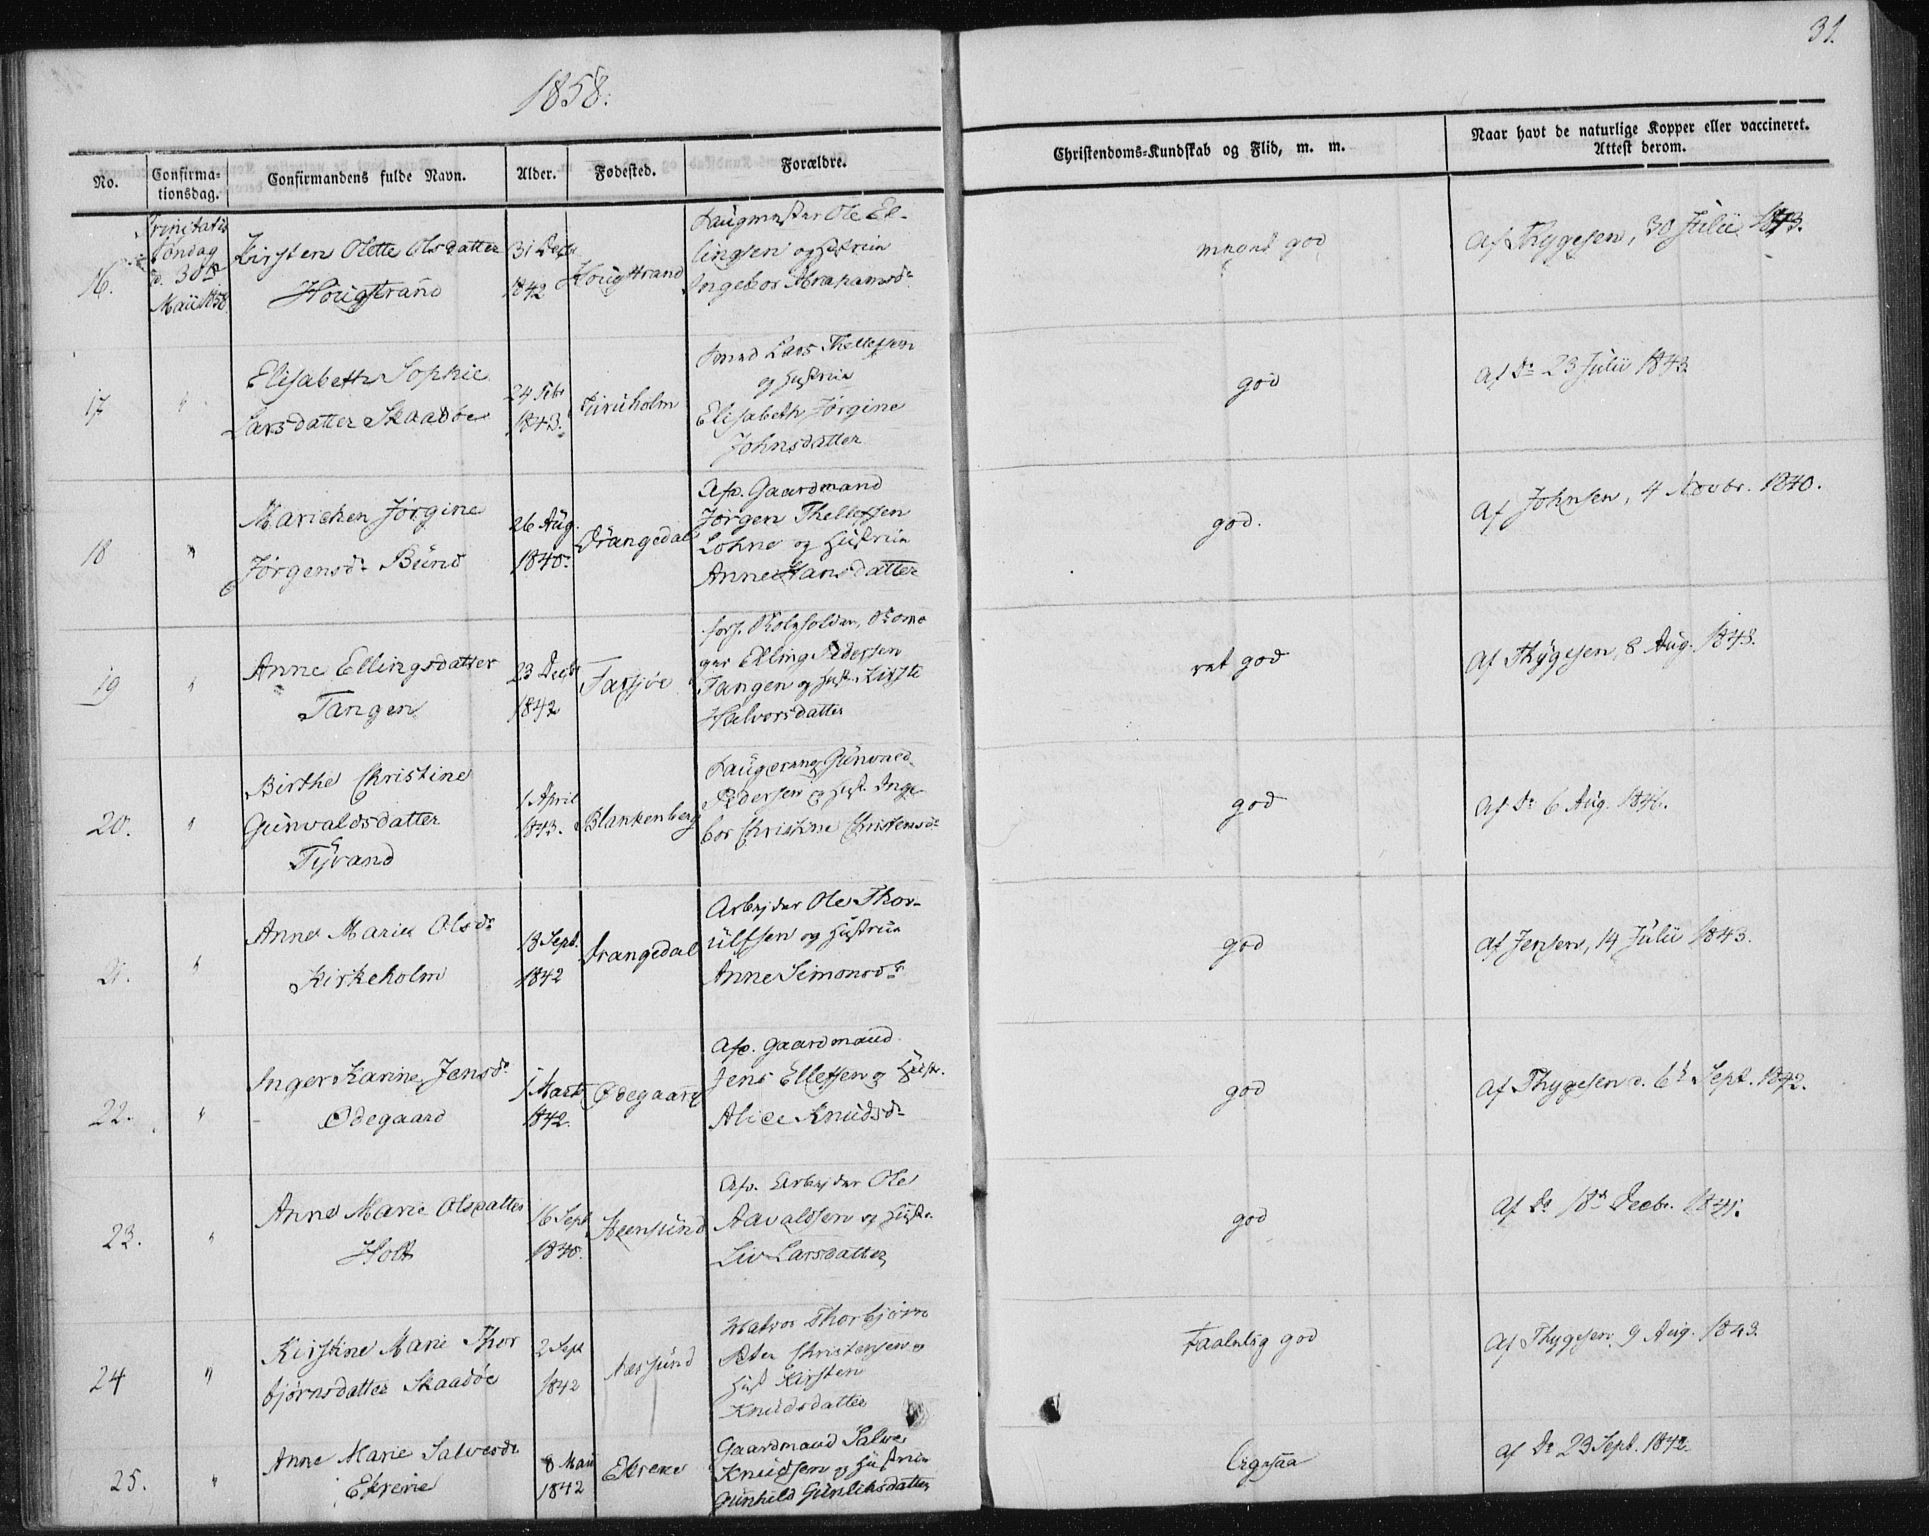 31.
1858.
No.
Confirma-
tionsdag.
Confirmandens fulde Navn.
Alder.
Fødested.
Forældre.
Christendoms-Kundskab og Flid, m. m.
Naar havt de naturlige Kopper eller vaccineret.
Attest derom.
16.
Trinitatis
Søndag
d. 30te
Maii 1858.
Kirsten Olette Olsdatter
Hougstrand
31 Decbr
1842
Hougstrand
Ole El-
lingsen og Hustrue
Ingebor Abrahamsdr
meget god
Af Thygesen, 30 Julii 1843.
17
"
Elisabeth Sophie
Larsdatter Skaadøe
24 Febr
1843.
Furuholm
Lars Thellefsen
og Hustrue
Elisabeth Jørgine
Johnsdatter
god
Af Do 23 Julii 1843.
18
"
Marichen Jørgine
Jørgensdr Bünd
26 Aug.
1840.
Drangedal
Afd. Gaardmand
Jørgen Thellefsen
Lohne og Hustrue
Anne Hansdatter
god.
Af Johnsen, 4 Novbr. 1840.
19
"
Anne Ellingsdatter
Tangen
23 Decbr
1842
Farsjøe
Elling Pedersen
Tangen og Hust. Kirste
Halvorsdatter
ret god
Af Thygesen, 8 Aug. 1843.
20.
"
Birthe Christine
Gunvaldsdatter
Tyvand
1 April
1843.
Blankenberg
Gunvald
Pedersen og Hust. Inge-
bor Christine Christensdr
god
Af Do 6 Aug. 1846.
21.
"
Anne Marie Olsdr
Kirkeholm
13 Sept.
1842
Drangedal
Arbejder Ole Thor-
ulfsen og Hustrue
Anne Simonsdr
god
Af Jensen, 14 Julii 1843.
22.
"
Inger Karine Jensdr
Ødegaard
1 Marts
1842.
Ødegaard
Afd. Gaardmand
Jens Ellefsen og Hustr.
Alice Knudsdr
god
Af Thygesen d. 6t Sept. 1842.
23.
"
Anne Marie Olsdatter
Holt
16 Sept
1840.
Steensund
Afd. Arbejder Ole
Aavaldsen og Hustr.
Liv Larsdatter
god
Af Do 18de Decbr. 1841.
24
"
Kirstine Marie Thor
bjørnsdatter Skaadøe
2 Sept
1842
Nessund
Matros Thorbjørn
Peter Christensen og
Hust Kirsten
Knudsdatter
taalelig god
Af Thygesen, 9 Aug. 1843.
25.
"
Anne Marie Salvesdr
Ekrene
8 Maii
1842
Ekrene
Gaardmand Salve
Knudsen og Hustrue
Gunhild Gunleksdatter
ligesaa
Af Do 23 Sept. 1842.